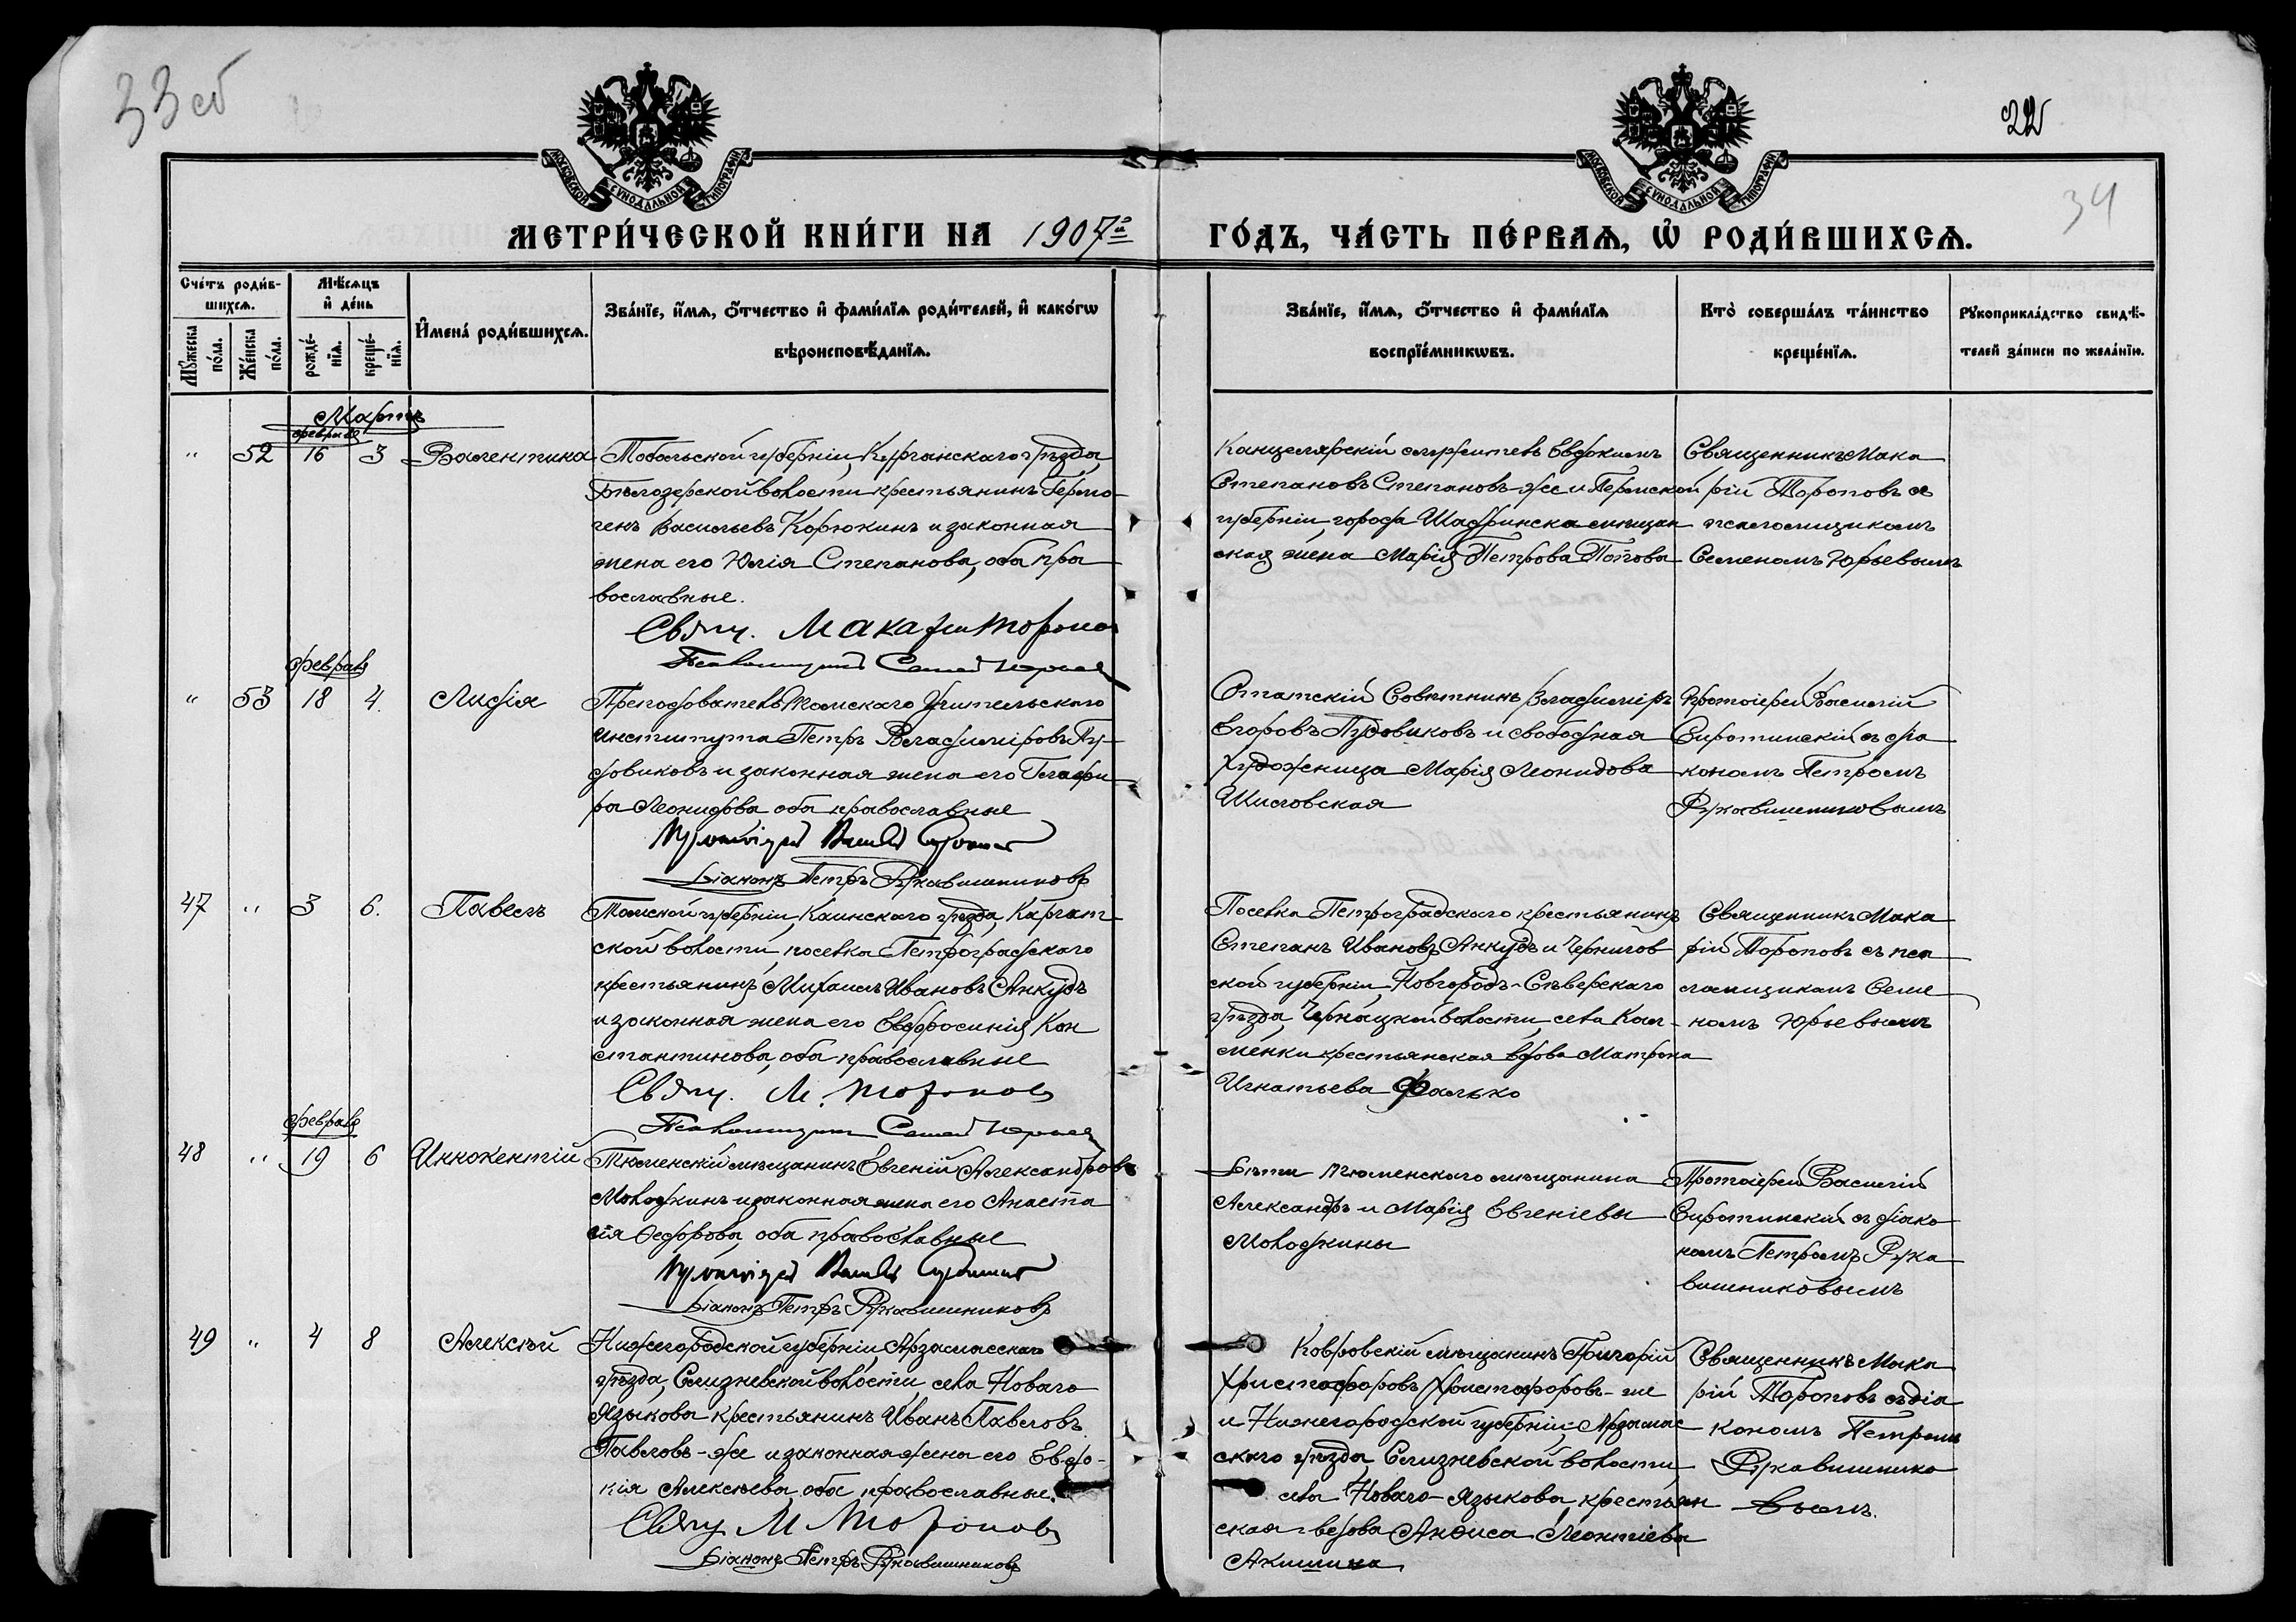 33об
22
34
МОСКОВСКОЙ СѴНОДАЛЬНОЙ ТИПОГРАФІИ
МОСКОВСКОЙ СѴНОДАЛЬНОЙ ТИПОГРАФІИ
МЕТРИ́ЧЕСКОЙ КНИ́ГИ НА 1907й ГО́ДЪ, ЧА́СТЬ ПЕ́РВАѦ, Ѡ РОДИ́ВШИХСѦ.
Сче́тъ роди́в-
шихсѧ.
Мꙋ́жеска по́ла.
Же́нска по́ла.
Мѣ́сѧцъ
и де́нь
рожде́-нїѧ.
креще́-нїѧ.
Имена̀ роди́вшихсѧ.
Зва́нїе, и́мѧ, ѻ́тчество и фами́лїѧ роди́телей, и како́гѡ
вѣроисповѣ́данїѧ.
Зва́нїе, и́мѧ, ѻ́тчество и фами́лїѧ
воспрїе́мникѡвъ.
Кто̀ соверша́лъ та́инство
креще́нїѧ.
Рꙋкоприкла́дство свидѣ́-
телей за́писи по жела́нїю.
Мартъ
февраля
" 52 16 3 Валентина
Тобольской губерніи, Курганскаго уѣзда,
Бѣлозерской волости крестьянинъ Гермо-
генъ Васильевъ Корюкинъ и законная
жена его Юлія Степанова, оба пра
вославные.
Свящ. Макарій Торопов
Псаломщикъ Семенъ Юрьевъ
Канцелярскій служитель Евдокимъ
Степановъ Степановъ-же и Пермской
губерніи города Шадринска мѣщан
ская жена Марія Петрова Попова
Священникъ Мака
рій Тороповъ съ
псаломщикомъ
Семеномъ Юрьевымъ
февраля
" 53 18 4. Лидія
Преподователь Томскаго Учительскаго
Института Петръ Владиміровъ Пу-
довиковъ и законная жена его Глафи
ра Леонидова, оба православные
Протоіерей Василій Сиротинскій
Діаконъ Петръ Рукавишниковъ
Статскій Совѣтникъ Владиміръ
Егоровъ Пудовиковъ и свободная
художница Марія Леонидова
Шиловская
Протоіерей Василій
Сиротинскій съ діа
кономъ Петромъ
Рукавишниковымъ
47 " 3 6. Павелъ
Томской губерніи, Каинскаго уѣзда, Каргат-
ской волости, поселка Петроградскаго
крестьянинъ Михаилъ Ивановъ Анкудъ
и законная жена его Евфросинія Кон
стантинова, оба православные
Свящ. М. Тороповъ
Псаломщикъ Семенъ Юрьевъ
Поселка Петроградскаго крестьянинъ
Степанъ Ивановъ Анкудъ и Чернигов
ской губерніи, Новгородъ-Сѣверскаго
уѣзда, Чернацкой волости, села Кал-
менки крестьянская вдова Матрона
Игнатьева Фалько
Священникъ Мака
рій Тороповъ съ пса
ломщикомъ Семе
номъ Юрьевымъ
февраля
48 " 19 6 Иннокентій
Тюменскій мѣщанинъ Евгеній Александровъ
Молодкинъ и законная жена его Анаста
сія Ѳедорова, оба православные
Протоіерей Василій Сиротинскій
Діаконъ Петръ Рукавишниковъ
Дѣти тюменскаго мѣщанина
Александръ и Марія Евгеніевы
Молодкины
Протоіерей Василій
Сиротинскій съ діако
номъ Петромъ Рука
вишниковымъ
49 " 4 8 Алексѣй
Нижегородской губерніи, Арзамасскаго
уѣзда, Селизневской волости, села Новаго
Языкова крестьянинъ Иванъ Павловъ
Павловъ-же и законная жена его Евдо-
кія Алексѣева, оба православные.
Свящ М Тороповъ
Діаконъ Петръ Рукавишниковъ
Ковровскій мѣщанинъ Григорій
Христофоровъ Христофоровъ-же
и Нижегородской губерніи, Арзамас
скаго уѣзда, Селизневской волости,
села Новаго-Языкова, крестьян
ская вдова Анфиса Леонтіева
Акишина
Священникъ Мака
рій Тороповъ съ діа
кономъ Петромъ
Рукавишнико
вымъ.